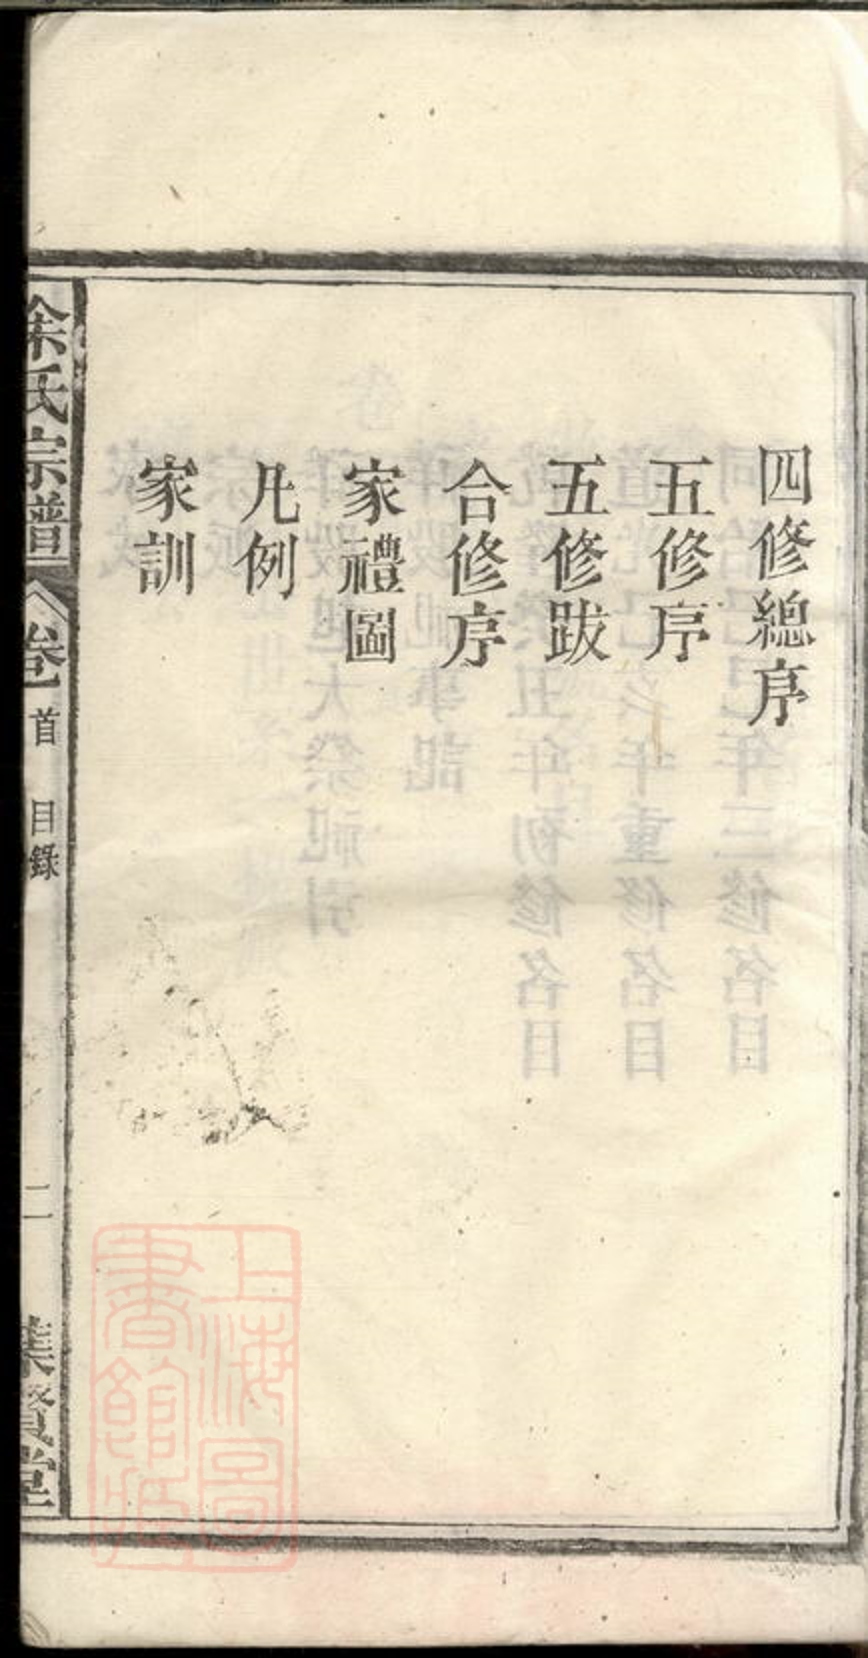 四修總序
五修序
五修跋
合修序
家禮圖
凡例
家訓
余氏宗譜
卷
首
目錄
二
集賢堂
上海圖
書館藏